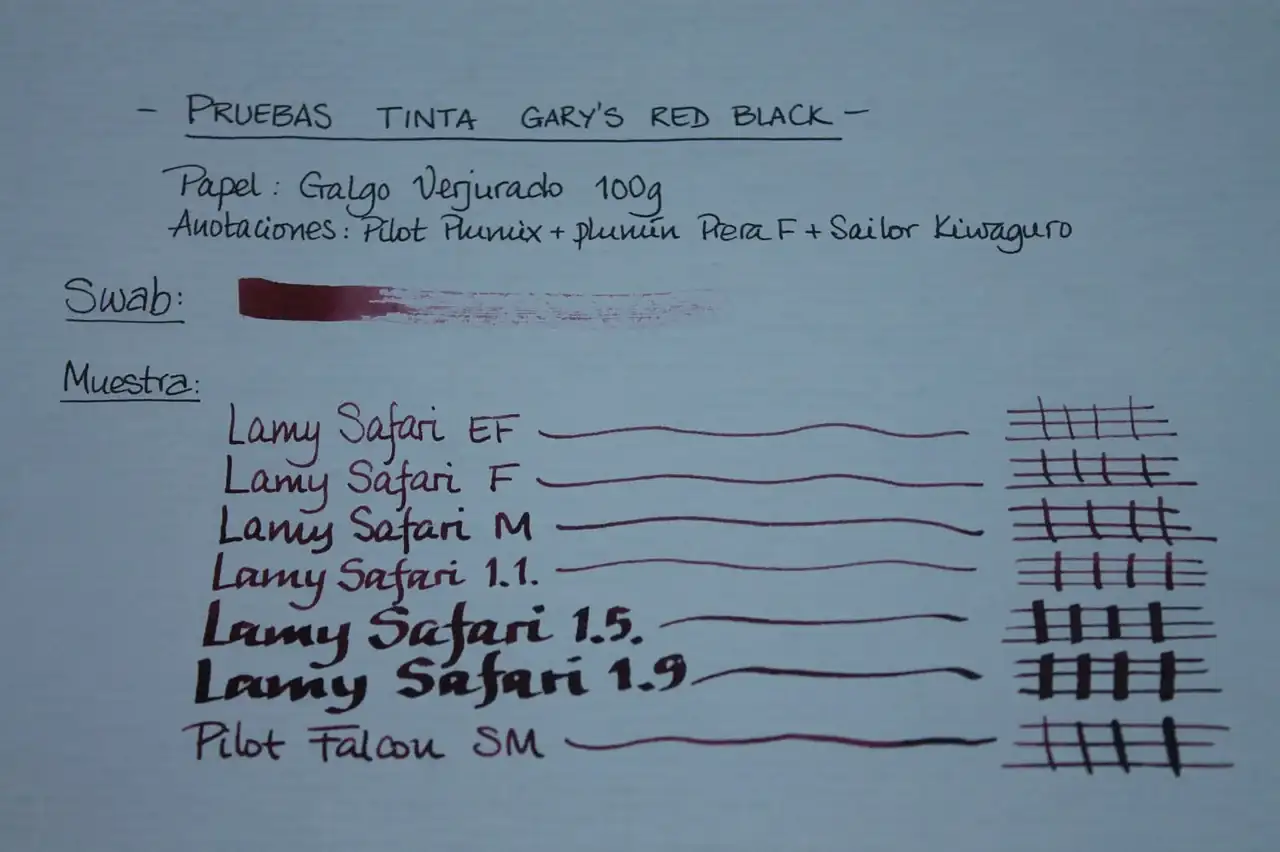 - PRUEBAS TINTA GARY'S RED BLACK -
Papel: Galgo Verjurado 100g
Anotaciones: Pilot Plumix + plumín Prera F + Sailor Kiwaguro
Swab:
Muestra:
Lamy Safari EF
Lamy Safari F
Lamy Safari M
Lamy Safari 1.1.
Lamy Safari 1.5.
Lamy Safari 1.9
Pilot Falcon SM